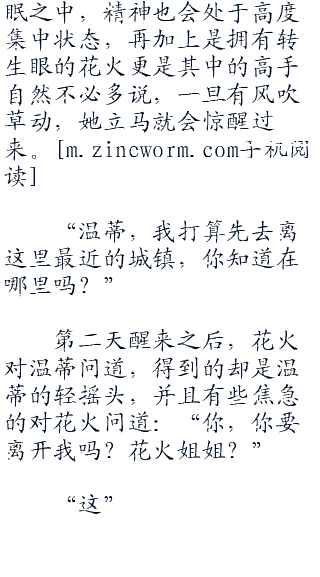 眠之中，精神也会处于高度
集中状态，再加上是拥有转
生眼的花火更是其中的高手
自然不必多说，一旦有风吹
草动，她立马就会惊醒过
来。[m.zincworm.com手机阅
读]
“温蒂，我打算先去离
这里最近的城镇，你知道在
哪里吗？”
第二天醒来之后，花火
对温蒂问道，得到的却是温
蒂的轻摇头，并且有些焦急
的对花火问道：“你，你要
离开我吗？花火姐姐？”
“这”